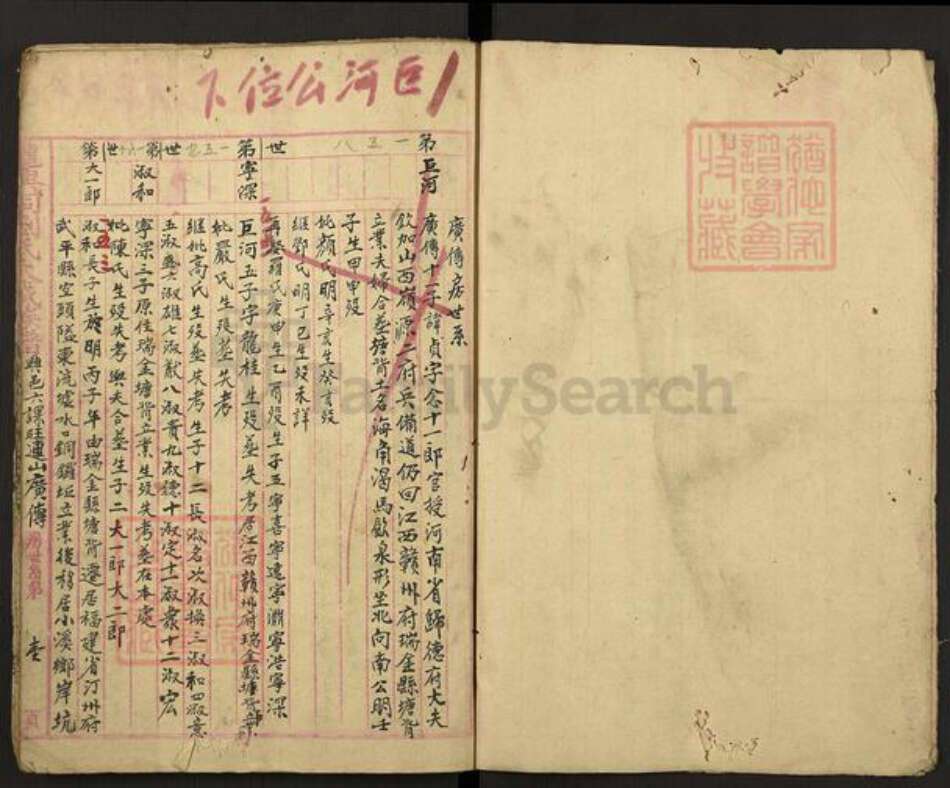 巨河公位下
廣傳房世系
第一五八
巨河
廣傳十一子諱貞字念十一郎官授河南省歸德府大夫
欽加山西嶺源二府兵備道仍回江西贛州府瑞金縣塘背
立業夫婦合葬塘背土名海角渴馬飲泉形坐北向南公明壬
子生甲申歿
妣顏氏明辛亥生癸亥歿
繼鄧氏明丁巳生歿未詳
再娶羅氏庚申生乙酉歿生子五寧喜寧遠寧淵寧浩寧深
世
第一五九
寧深
巨河五子字龍桂生歿葬失考居江西贛州府瑞金縣塘背
妣嚴氏生歿葬失考
繼妣高氏生歿葬失考生子十二長淑名次淑換三淑和四淑意
五淑盛六淑雄七淑猷八淑貴九淑德十淑定十一淑羲十二淑宏
世
第
淑和
寧深三子原住瑞金塘背立業生歿失考葬在本處
妣陳氏生歿失考與夫合葬生子二大一郎大二郎
世
第
大一郎
淑和長子生於明丙子年由瑞金縣塘背遷居福建省汀州府
武平縣空頭隘東流墟水口銅鑼坵立業後移居小溪鄉岸坑
山廣傳
FamilySearch